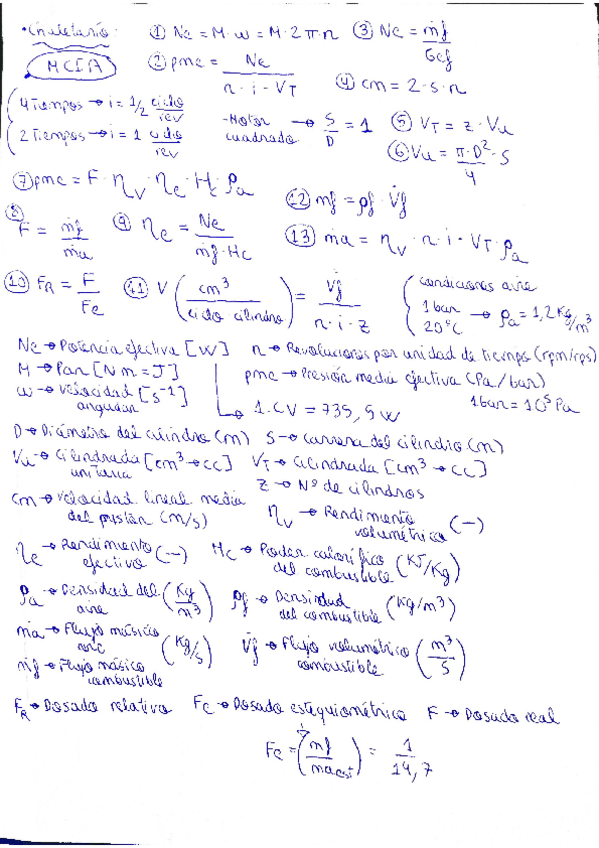 • Chuletario:
MCIA
① Ne = M · w = M · 2 π · n
③ Ne = ṁf / Gef
② pme = Ne / n · i · VT
④ cm = 2 · s · n
4 Tiempos → i = 1/2 ciclo/rev
2 Tiempos → i = 1 ciclo/rev
- Motor cuadrado → S/D = 1
⑤ VT = z · Vu
⑥ Vu = π · D² / 4 · S
⑦ pme = F · ηv · ηe · Hc · ρa
⑫ ṁf = ρf · V̇f
⑧ F = ṁf / ṁa
⑨ ηe = Ne / ṁf · Hc
⑬ ṁa = ηv · n · i · VT · ρa
⑩ FR = F / Fe
⑪ V (cm³ / ciclo cilindro) = V̇f / n · i · z
condiciones aire
1 bar
20°C → ρa = 1,2 Kg/m³
Ne → Potencia efectiva [W]
n → Revoluciones por unidad de tiempo (rpm/rps)
M → Par [N m = J]
pme → Presión media efectiva (Pa / bar)
w → velocidad angular [s⁻¹]
→ 1 CV = 735,5 W
1 bar = 10⁵ Pa
D → Diámetro del cilindro (m)
S → Carrera del cilindro (m)
Vu → Cilindrada unitaria [cm³ → cc]
VT → Cilindrada [cm³ → cc]
z → Nº de cilindros
cm → velocidad lineal media del pistón (m/s)
ηv → Rendimiento volumétrico (-)
ηe → Rendimiento efectivo (-)
Hc → Poder calorífico del combustible (KJ/Kg)
ρa → Densidad del aire (Kg/m³)
ρf → Densidad del combustible (Kg/m³)
ṁa → Flujo másico aire (Kg/s)
V̇f → Flujo volumétrico combustible (m³/s)
ṁf → Flujo másico combustible
FR → Dosado relativo
Fe → Dosado estequiométrico
F → Dosado real
Fe = (ṁf / ṁa est) = 1 / 14,7